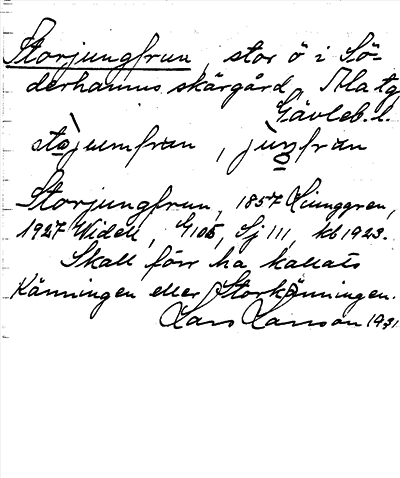 Storjungfrun, stor ö i Sö-
derhamns skärgård,
Gävleb. l.
stòjuṃfran, juṃfran
Storjungfrun, 1857 Ljunggren,
1927 Widell, G105, Sj 111, kb 1923.
Skall förr ha kallats
Känningen eller Storkänningen.
Lars Larsson 1931